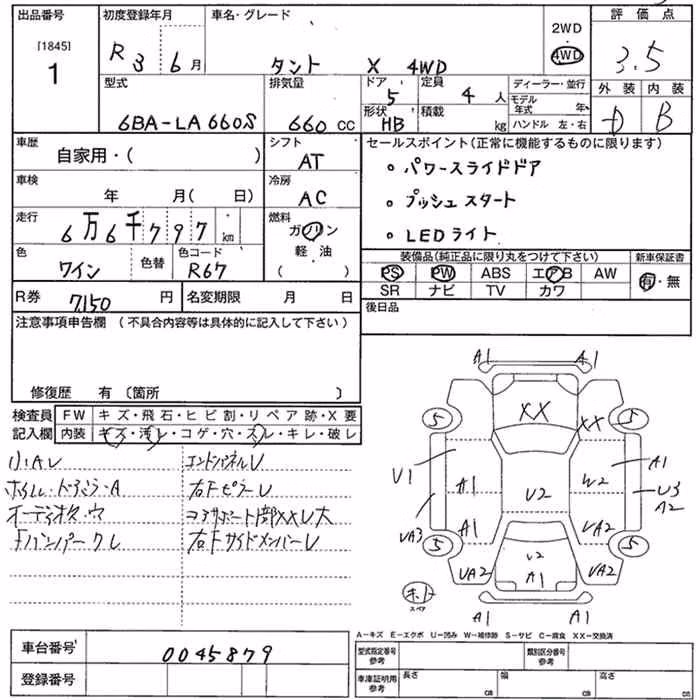 出品番号
[1845]
1
初度登録年月
R 3 6月
車名・グレード
タント X 4WD
2WD
・
4WD
評価点
3.5
外装 内装
D B
型式
6BA-LA660S
排気量
660 cc
ドア 5
形状 HB
定員 4 人
積載 kg
ディーラー・並行
モデル年式 年
ハンドル 左・右
車歴
自家用・( )
シフト
AT
車検
年 月( 日)
冷房
AC
走行
6万6千797 km
燃料
ガソリン
軽・油
( )
色
ワイン
色替
色コード
R67
セールスポイント(正常に機能するものに限ります)
○ パワースライドドア
○ プッシュスタート
○ LEDライト
装備品(純正品に限り丸をつけて下さい)
PS PW ABS エアB AW
SR ナビ TV カワ
新車保証書
有・無
R券 7,150 円
名変期限 月 日
後日品
注意事項申告欄 (不具合内容等は具体的に記入して下さい)
修復歴 有 〔箇所 〕
検査員記入欄
FW キズ・飛石・ヒビ割・リペア跡・X要
内装 キズ・汚レ・コゲ・穴・スレ・キレ・破レ
小AU
エンドパネルU
右FピラーU
右FサイドメンバーU
A1 A1
5 XX XX 5
U1 A1 U2 W2 A1
U3
A2
UA3 A1 UA2
5 5
UA2 U2 A1 UA2
スペア
A1 A1
A-キズ E-エクボ U-凹み W-補修跡 S-サビ C-腐食 XX-交換済
車台番号 0045879
登録番号
型式指定番号
参考
類別区分番号
参考
車庫証明用
参考
長さ cm 幅 cm 高さ cm